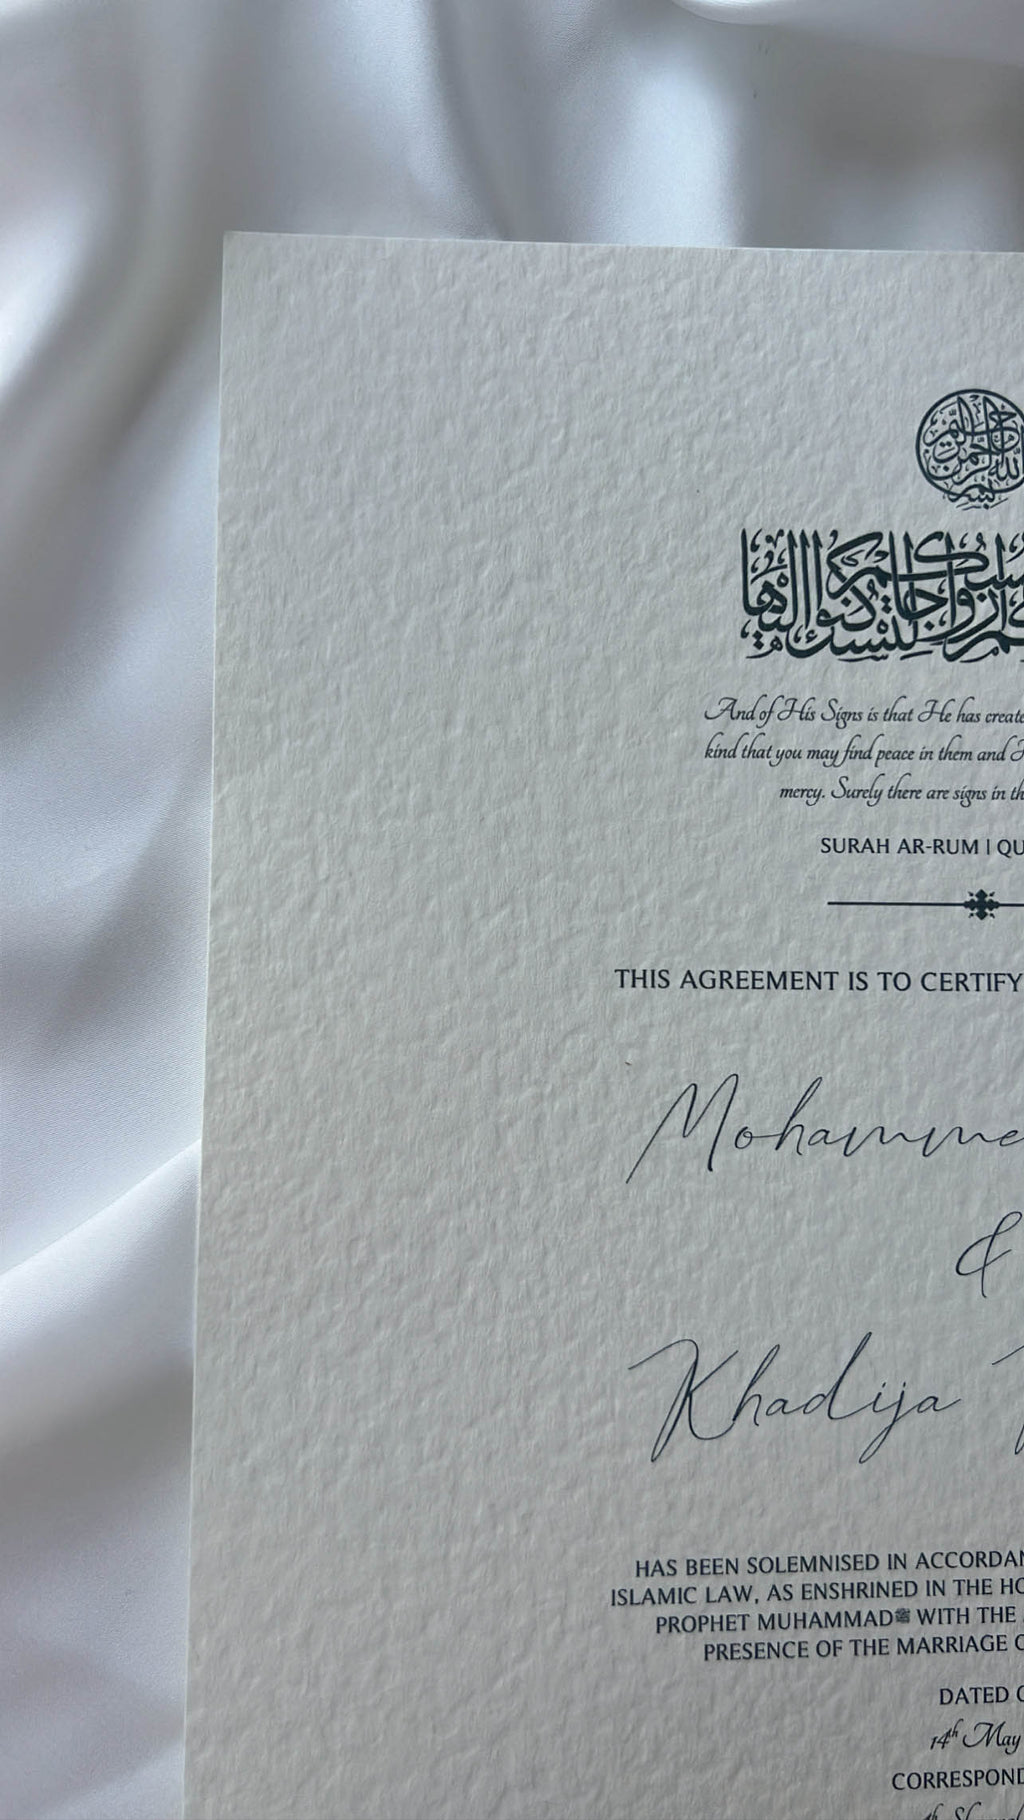 بسم الله الرحمن الرحيم
أزواجا لتسكنوا إليها
And of His Signs is that He has create
kind that you may find peace in them and
mercy. Surely there are signs in th
SURAH AR-RUM | QU
THIS AGREEMENT IS TO CERTIFY
Mohamme
&
Khadija
HAS BEEN SOLEMNISED IN ACCORDAN
ISLAMIC LAW, AS ENSHRINED IN THE HO
PROPHET MUHAMMADﷺ WITH THE
PRESENCE OF THE MARRIAGE
DATED
14th May
CORRESPOND